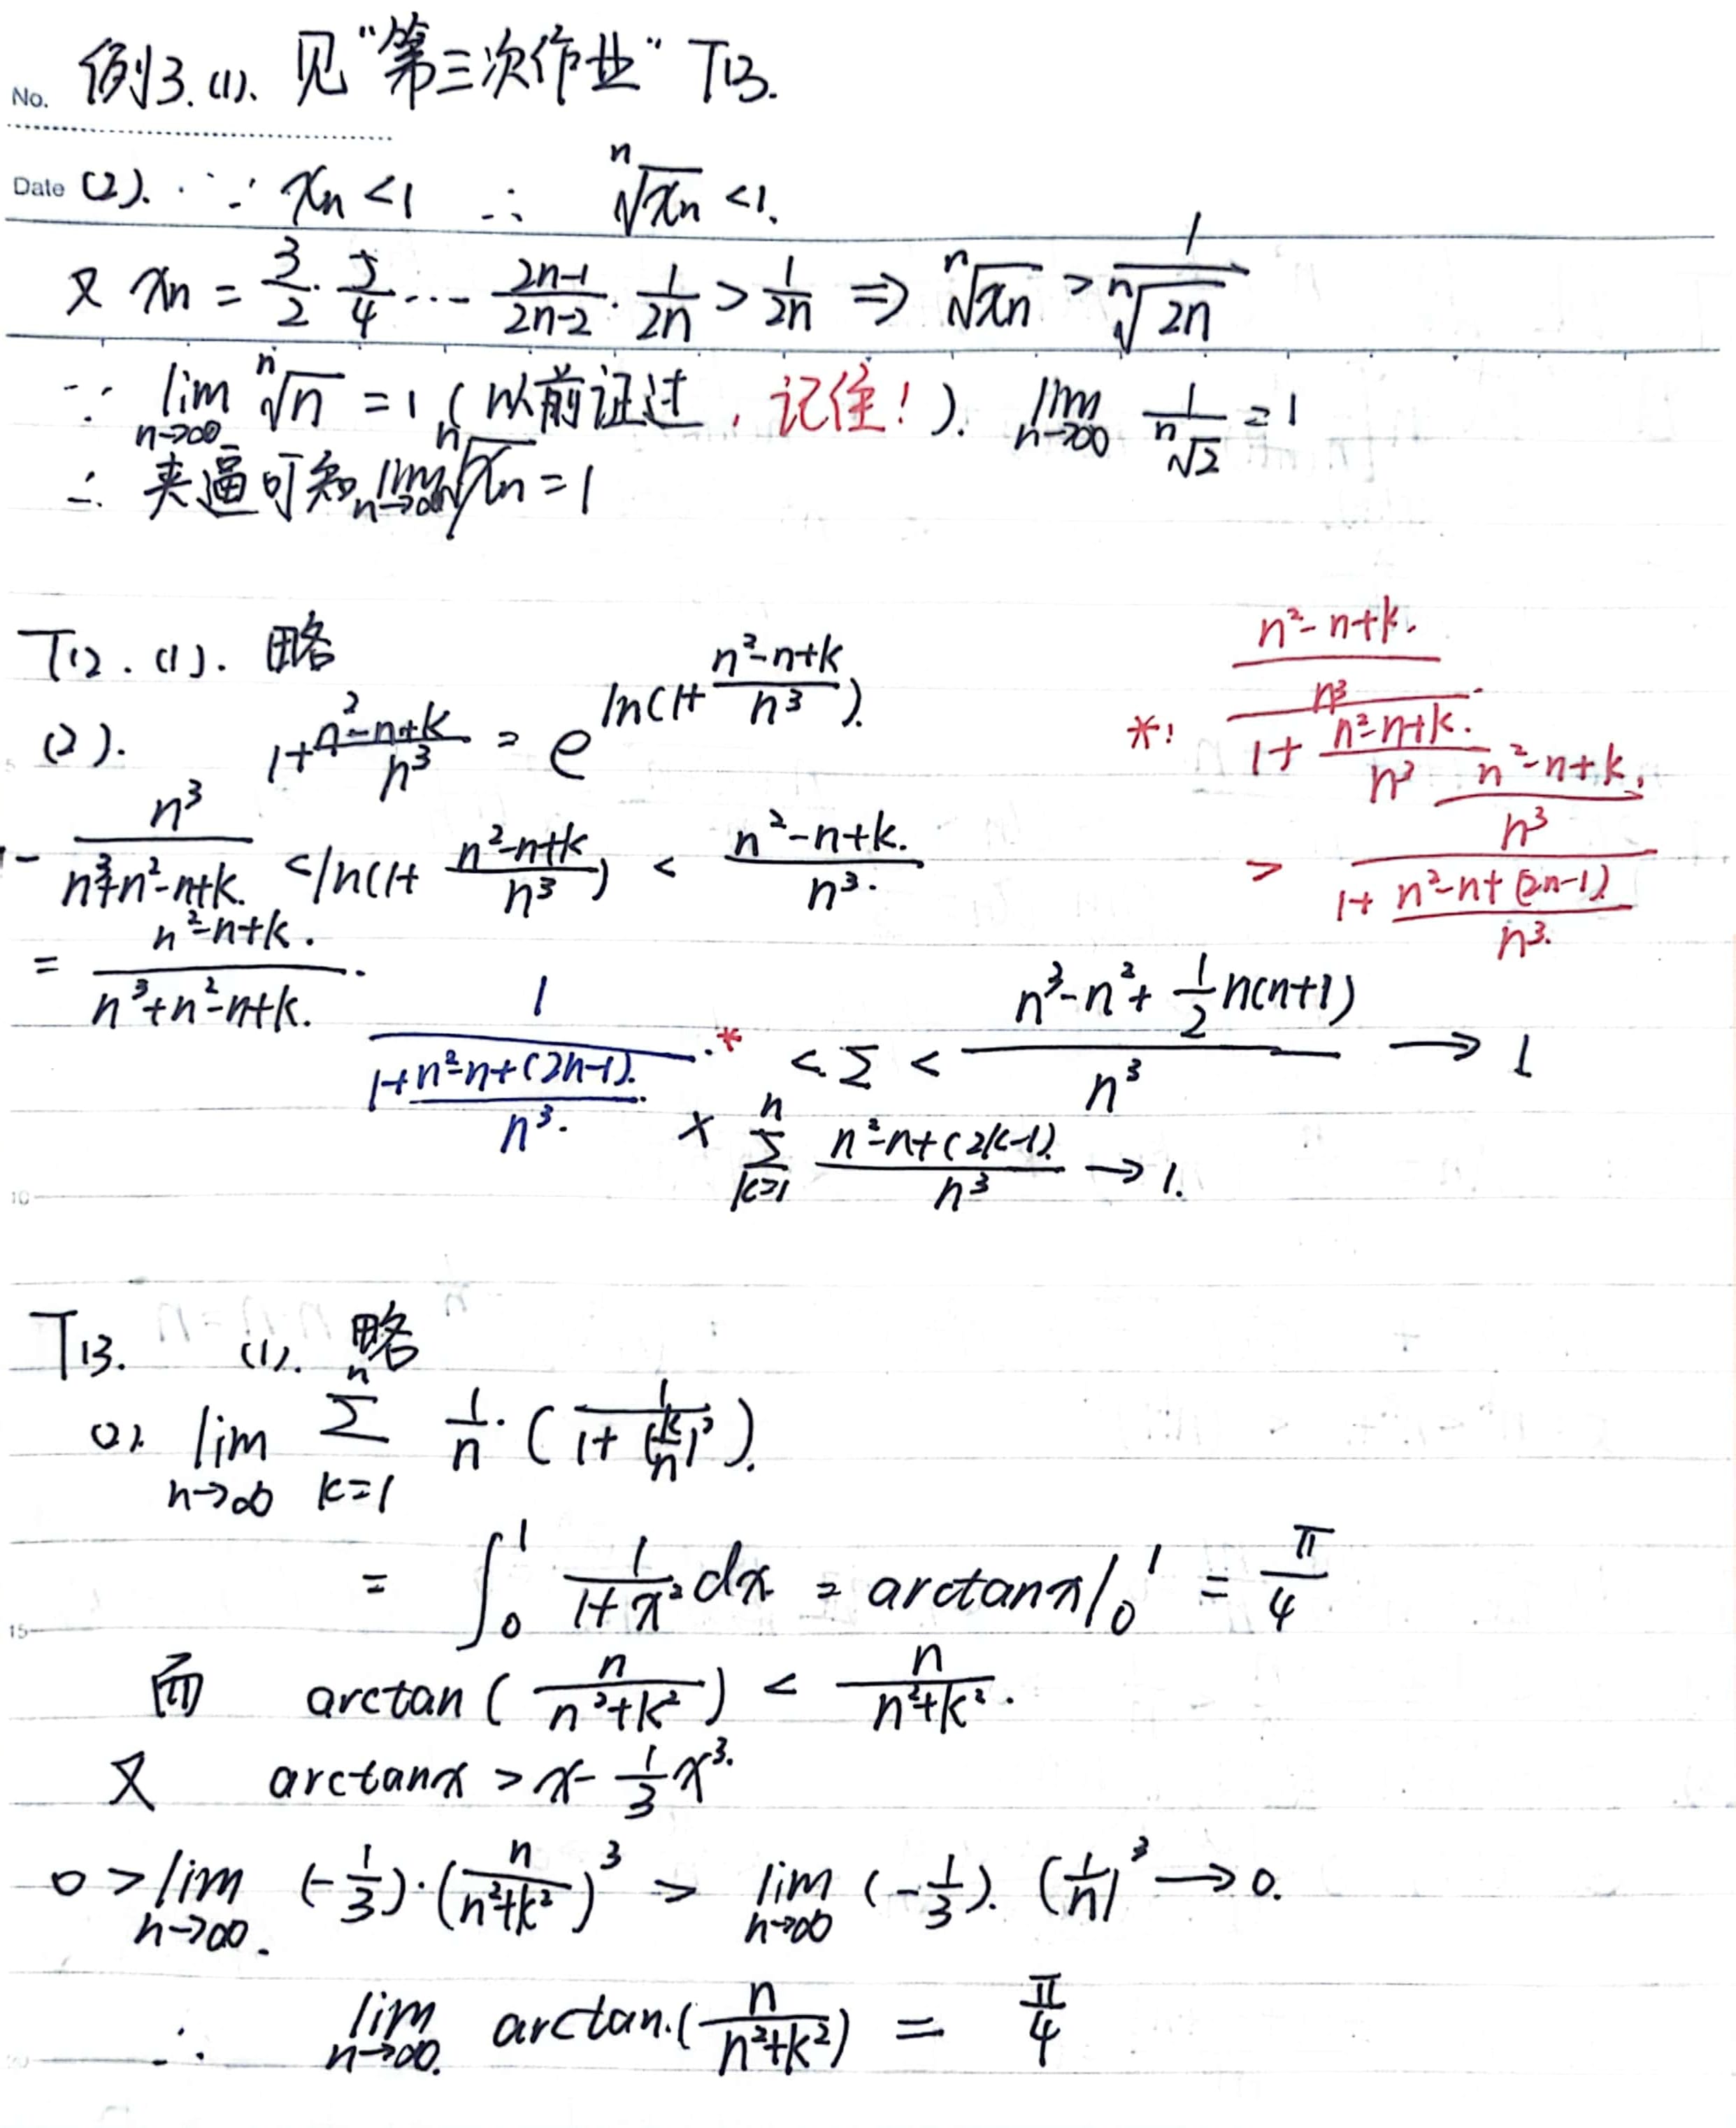 例3.(1). 见“第三次作业” T13.
No.
Date (2). ∵ xn < 1 ∴ ⁿ√xn < 1.
又 xn = 3/2 · 5/4 ··· (2n-1)/(2n-2) · 1/2n > 1/2n ⇒ ⁿ√xn > 1/ⁿ√2n
∵ lim n→∞ ⁿ√n = 1 (以前证过, 记住!). lim n→∞ 1/ⁿ√2 = 1
∴ 夹逼可知 lim n→∞ ⁿ√xn = 1
T12. (1). 略
(2). 1+(n²-n+k)/n³ = e^(ln(1+(n²-n+k)/n³))
1 - n³/(n³+n²-n+k) < ln(1+(n²-n+k)/n³) < (n²-n+k)/n³.
= (n²-n+k)/(n³+n²-n+k).
*: ((n²-n+k)/n³)/(1+(n²-n+k)/n³)
> ((n²-n+k)/n³)/(1+(n²-n+(2n-1))/n³)
1/(1+(n²-n+(2n-1))/n³) ·* < Σ < (n³-n²+½n(n+1))/n³ → 1
× Σ k=1 n (n²-n+(2k-1))/n³ → 1.
10
T13. (1). 略
(2). lim n→∞ Σ k=1 n 1/n · (1/(1+(k/n)²)).
= ∫₀¹ 1/(1+x²) dx = arctanx|₀¹ = π/4
15
而 arctan(n/(n²+k²)) < n/(n²+k²).
又 arctanx > x - 1/3 x³.
0 > lim n→∞. (-1/3)·(n/(n²+k²))³ > lim n→∞ (-1/3)·(1/n)³ → 0.
∴ lim n→∞. arctan.(n/(n²+k²)) = π/4